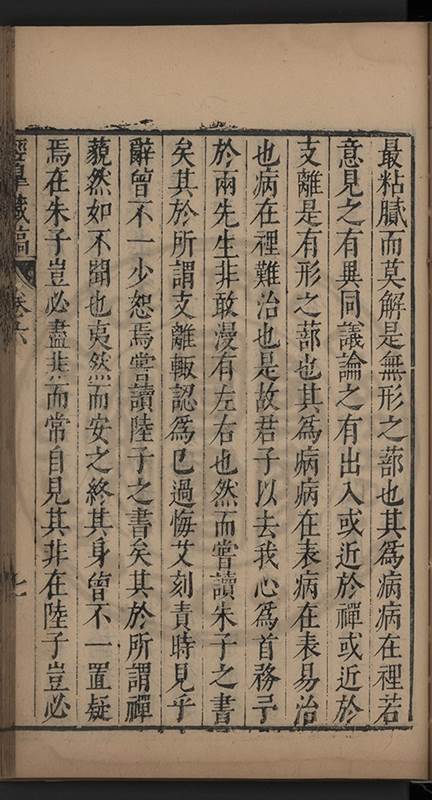 最粘膩而莫解是無形之蔀也其為病病在裡若
意見之有異同議論之有出入或近於禪或近於
支離是有形之蔀也其為病病在表病在表易治
也病在裡難治也是故君子以去我心為首務予
於兩先生非敢漫有左右也然而嘗讀朱子之書
矣其於所謂支離輙認為己過悔艾刻責時見乎
辭曾不一少恕焉嘗讀陸子之書矣其於所謂禪
藐然如不聞也夷然而安之終其身曾不一置疑
焉在朱子豈必盡非而常自見其非在陸子豈必
涇臯藏稿
卷六
七